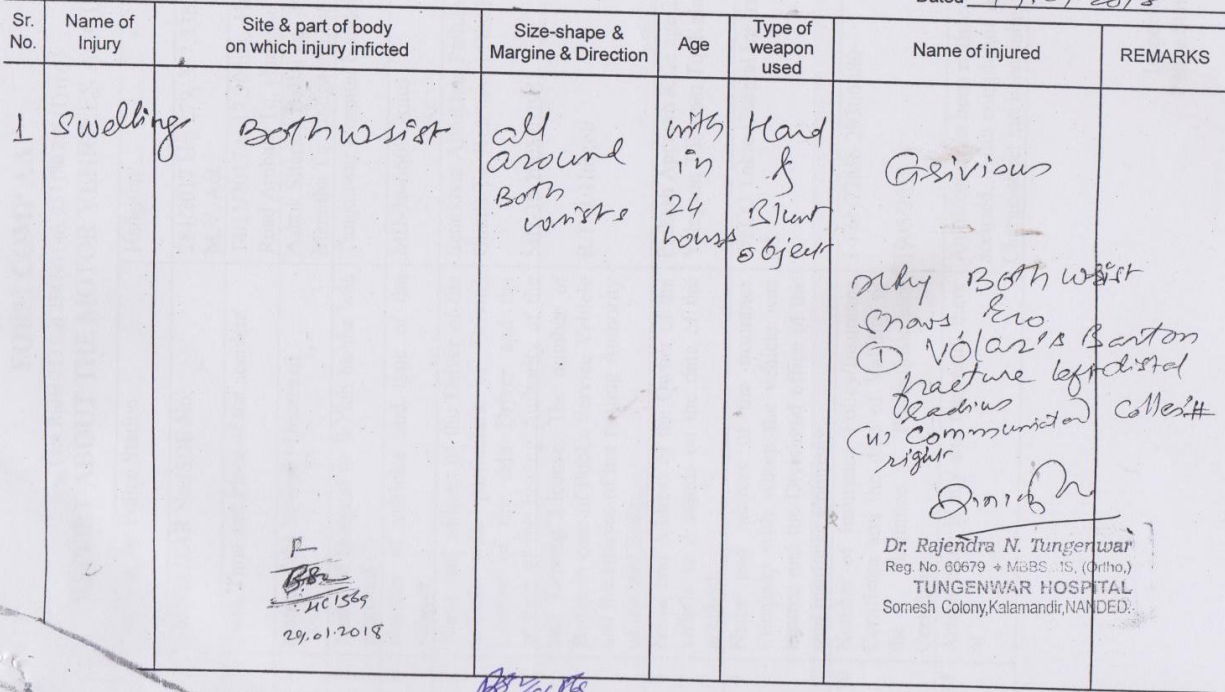 Dated 2018
Sr. No.
Name of Injury
Site & part of body on which injury inficted
Size-shape & Margine & Direction
Age
Type of weapon used
Name of injured
REMARKS
1
Swelling
Both wrist
all
around
Both
wrists
with
in
24
hours
Hard
&
Blunt
object
Grivious
xRay Both wrist
shows E/o
① Volar's Barton
fracture left distal
Radius
(ii) Communiated Colles'#
right
Dr. Rajendra N. Tungenwar
Reg. No. 60679 MBBS MS, (Ortho,)
TUNGENWAR HOSPITAL
Somesh Colony, Kalamandir, NANDED.
HC 1569
29.01.2018